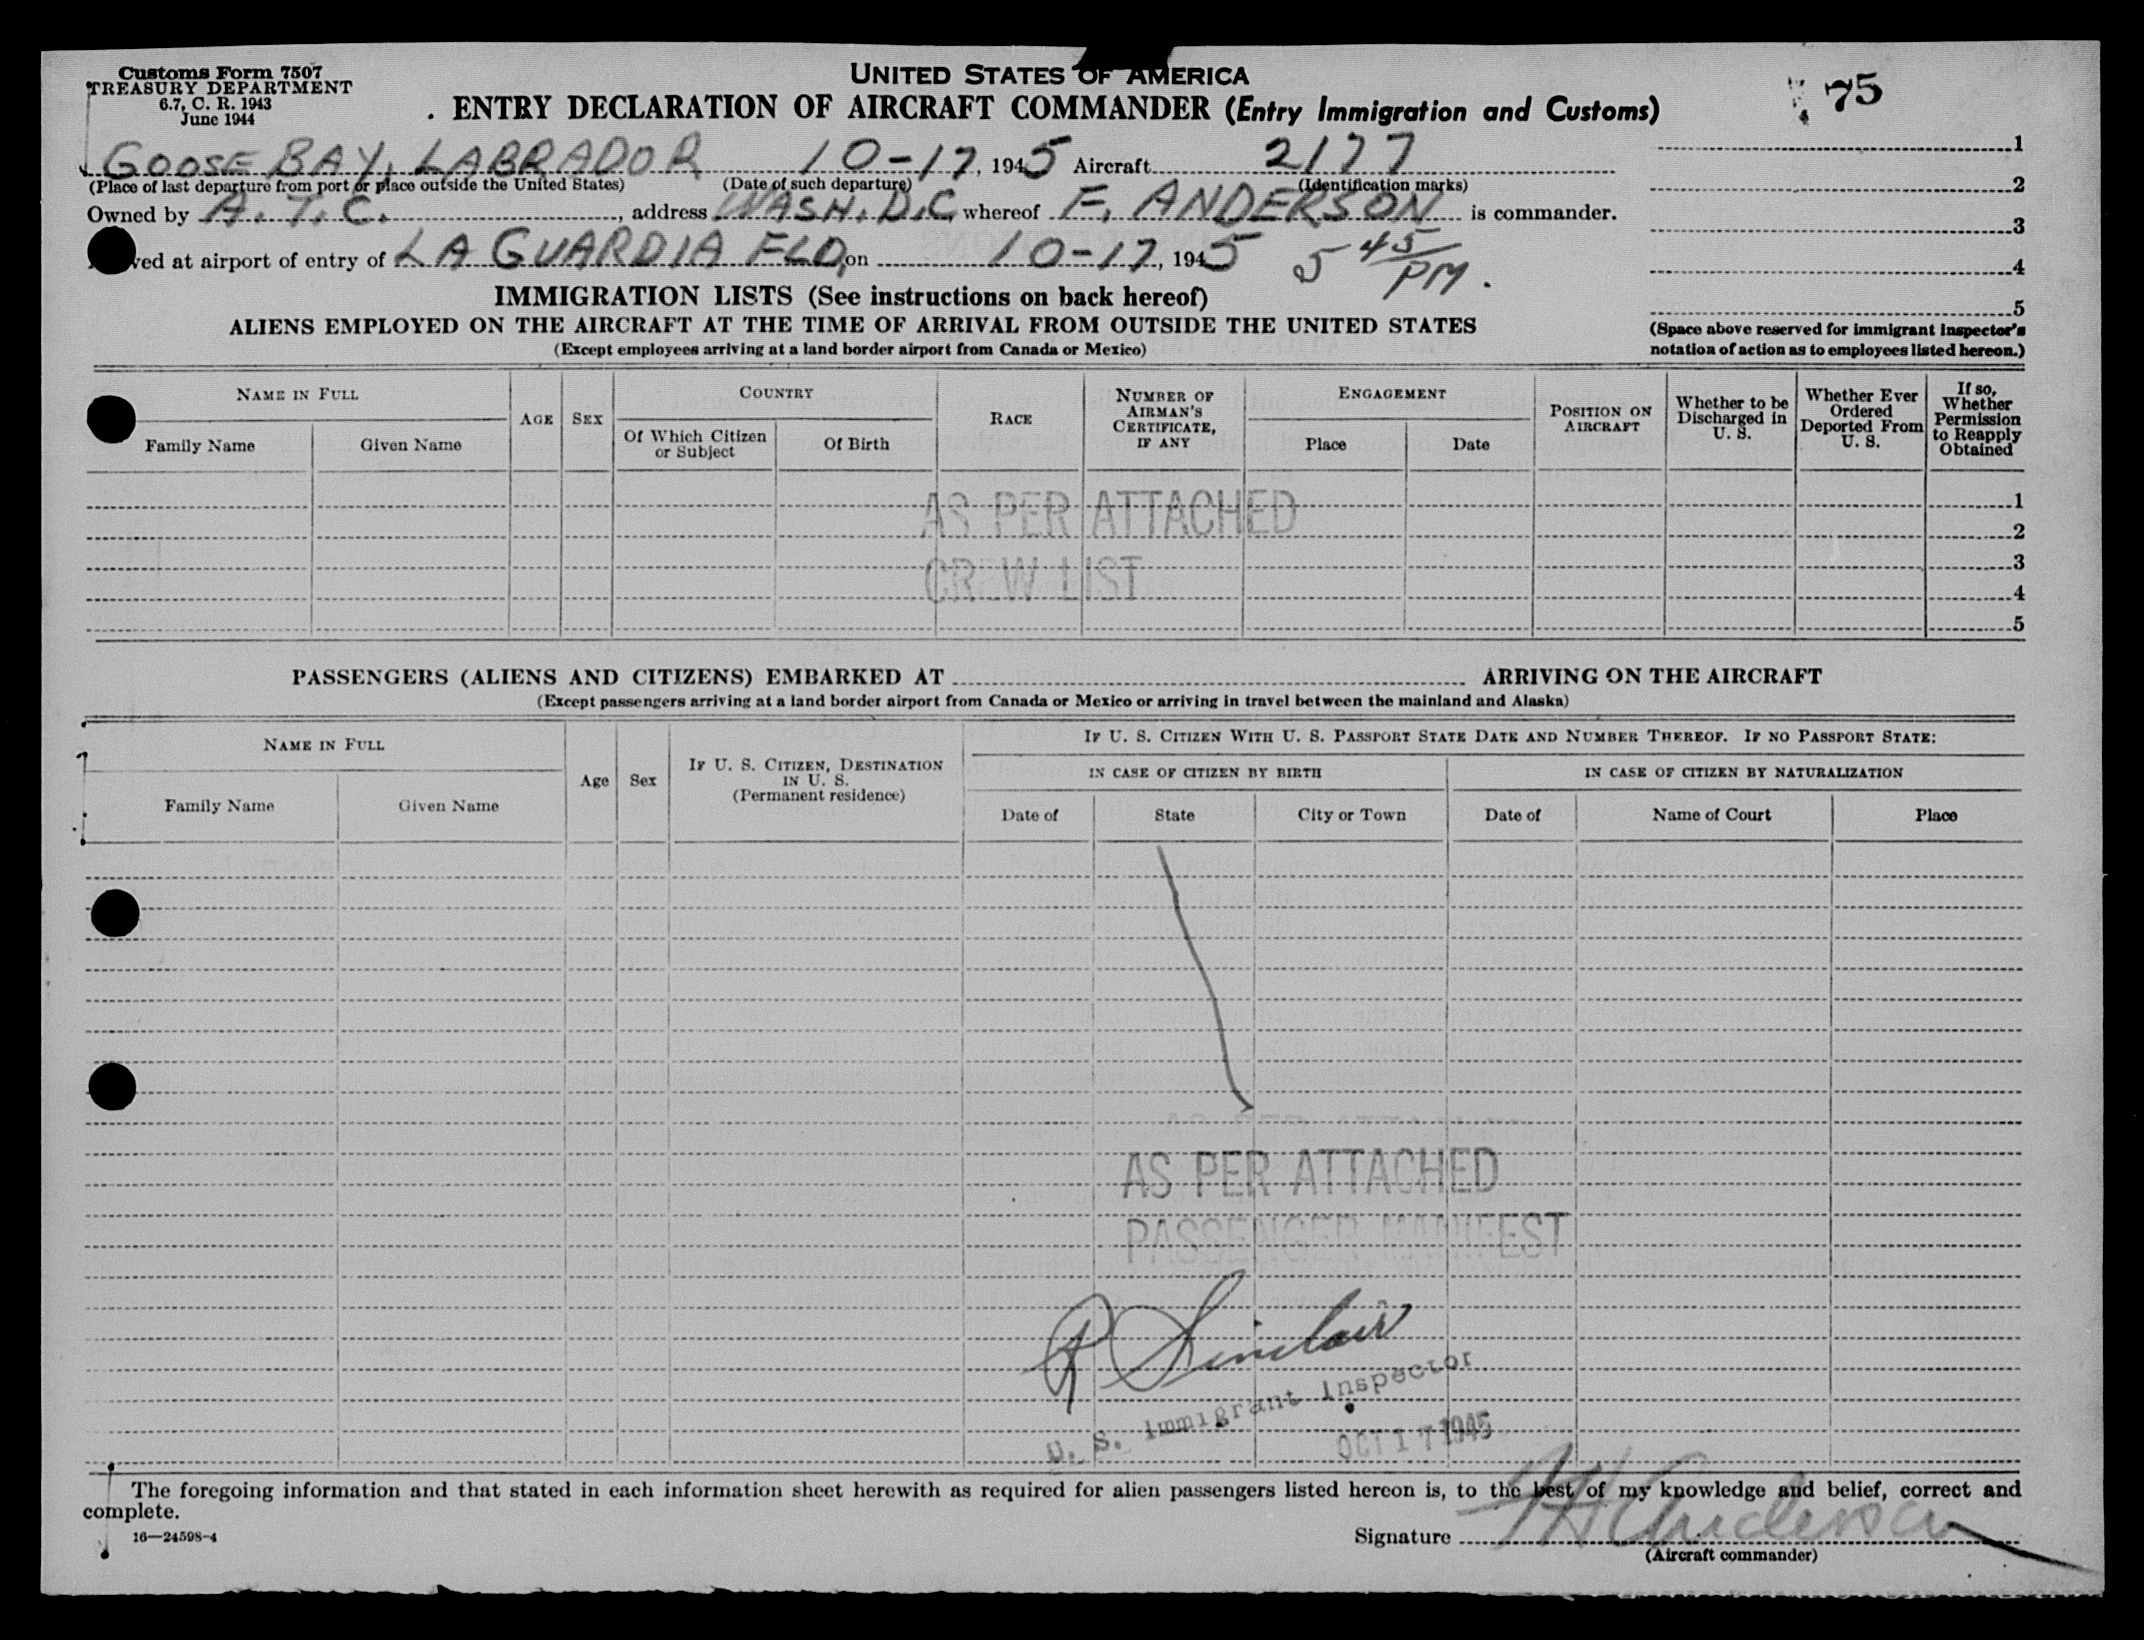 Customs Form 7507
TREASURY DEPARTMENT
6.7, C. R. 1943
June 1944
UNITED STATES OF AMERICA
ENTRY DECLARATION OF AIRCRAFT COMMANDER (Entry Immigration and Customs)
75
GOOSE BAY, LABRADOR 10-17, 1945 Aircraft 2177
(Place of last departure from port or place outside the United States) (Date of such departure) (Identification marks)
Owned by A. T. C., address WASH. D.C. whereof F. ANDERSON is commander.
ved at airport of entry of LA GUARDIA FLD, on 10-17, 1945 5 45/PM.
1
2
3
4
5
(Space above reserved for immigrant inspector's
notation of action as to employees listed hereon.)
IMMIGRATION LISTS (See instructions on back hereof)
ALIENS EMPLOYED ON THE AIRCRAFT AT THE TIME OF ARRIVAL FROM OUTSIDE THE UNITED STATES
(Except employees arriving at a land border airport from Canada or Mexico)
NAME IN FULL
Family Name
Given Name
AGE
SEX
COUNTRY
Of Which Citizen
or Subject
Of Birth
RACE
NUMBER OF
AIRMAN'S
CERTIFICATE,
IF ANY
ENGAGEMENT
Place
Date
POSITION ON
AIRCRAFT
Whether to be
Discharged in
U. S.
Whether Ever
Ordered
Deported From
U. S.
If so,
Whether
Permission
to Reapply
Obtained
1
2
3
4
5
AS PER ATTACHED
CREW LIST
PASSENGERS (ALIENS AND CITIZENS) EMBARKED AT ARRIVING ON THE AIRCRAFT
(Except passengers arriving at a land border airport from Canada or Mexico or arriving in travel between the mainland and Alaska)
NAME IN FULL
Family Name
Given Name
Age
Sex
IF U. S. CITIZEN, DESTINATION
IN U. S.
(Permanent residence)
IF U. S. CITIZEN WITH U. S. PASSPORT STATE DATE AND NUMBER THEREOF. IF NO PASSPORT STATE:
IN CASE OF CITIZEN BY BIRTH
IN CASE OF CITIZEN BY NATURALIZATION
Date of
State
City or Town
Date of
Name of Court
Place
AS PER ATTACHED
PASSENGER MANIFEST
R Sinclair
U. S. Immigrant Inspector
OCT 17 1945
The foregoing information and that stated in each information sheet herewith as required for alien passengers listed hereon is, to the best of my knowledge and belief, correct and
complete.
16—24598-4
Signature F H Anderson
(Aircraft commander)